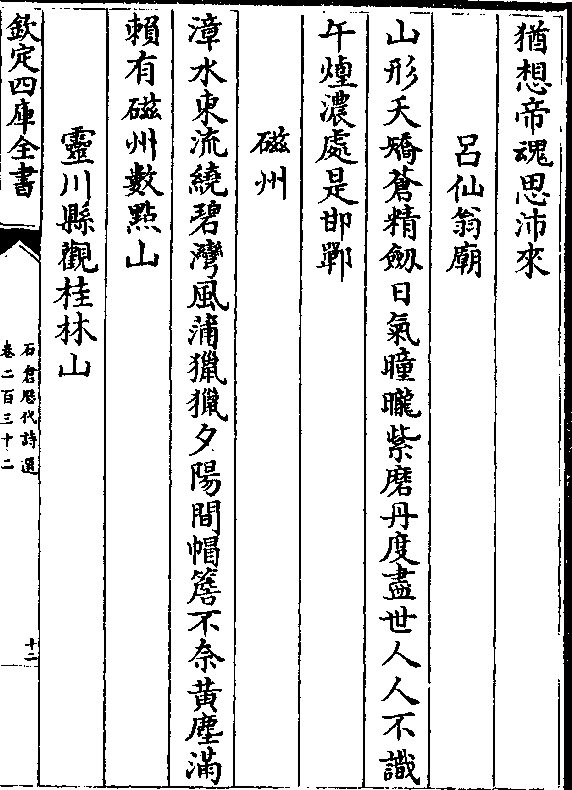 猶想帝魂思沛來
呂仙翁廟
山形夭矯蒼精劒日氣曈曨紫磨丹度盡世人人不識
午煙濃處是邯鄲
磁州
漳水東流繞碧灣風蒲獵獵夕陽間帽簷不奈黃塵滿
賴有磁州數點山
靈川縣觀桂林山
欽定四庫全書
石倉歷代詩選
卷二百三十二
十二